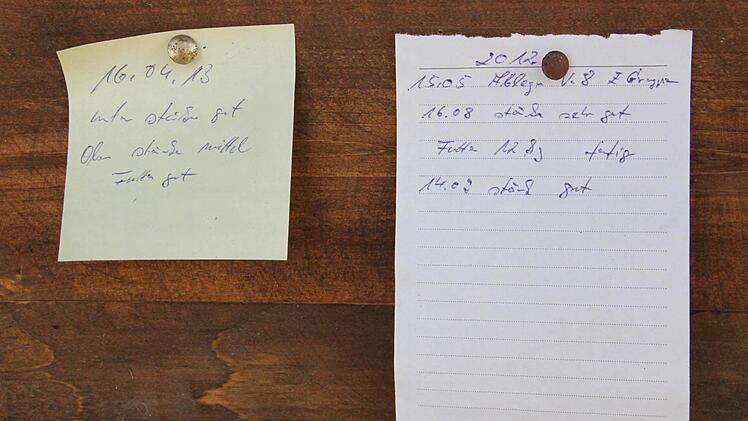 16.04.13
unten stärke gut
Oben stärke mittel
Futter gut
2012
15.05 Ableger V. 8 Z
16.08 stärke sehr gut
Futter 12 Kg fertig
14.09 stärke gut